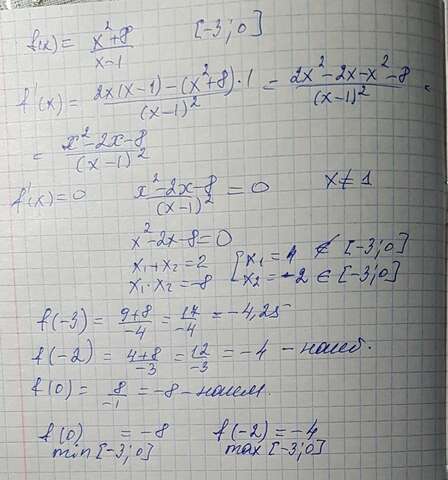 f(x) = (x²+8)/(x-1) [-3;0]
f'(x) = (2x(x-1)-(x²+8)·1)/(x-1)² = (2x²-2x-x²-8)/(x-1)² =
= (x²-2x-8)/(x-1)²
f'(x)=0 (x²-2x-8)/(x-1)² = 0 x≠1
x²-2x-8=0
x₁+x₂=2 [x₁=4 ∉ [-3;0]
x₁·x₂=-8 x₂=-2 ∈ [-3;0]
f(-3) = (9+8)/-4 = 17/-4 = -4,25
f(-2) = (4+8)/-3 = 12/-3 = -4 - наиб.
f(0) = 8/-1 = -8 - наим.
f(0) = -8 f(-2) = -4
min [-3;0] max [-3;0]